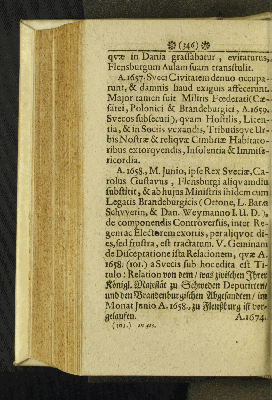 (346)
quæ in Dania grassabatur, evitaturus,
Flensburgum Aulam suam transtulit.
A. 1657. Sveci Civitatem denuo occupa-
runt, & damnis haud exiguis affecerunt.
Major tamen fuit Militis Fœderati (Cæ-
sarei, Polonici & Brandeburgici, A. 1659.
Svecos subsecuti), quam Hostilis, Licen-
tia, & in Sociis vexandis, Tribuisqve Ur-
bis Nostræ & reliqvæ Cimbriæ Habitato-
ribus extorqvendis, Insolentia & Immise-
ricordia.
A. 1658., M. Junio, ipse Rex Sveciæ, Ca-
rolus Gustavus, Flensburgi aliqvamdiu
substitit, & ab hujus Ministris ibidem cum
Legatis Brandeburgicis (Ottone, L. Bar. à
Schvverin, & Dan. Weymanno I. U. D.),
de componendis Controversiis, inter Re-
gem ac Electorem exortis, per aliqvot di-
es, sed frustra, est tractatum. V. Geminam
de Disceptatione ista Relationem, qvæ A.
1658. (101.) a Svecis sub hocedita est Ti-
tulo: Relation von dem / was zwischen Ihrer
Königl. Majestät zu Schweden Deputirten /
und den Brandenburgischen Abgesandten / im
Monat Junio A. 1658., zu Flenßburg ist vor-
gelauffen. A. 1674.
(101.) in 4to.